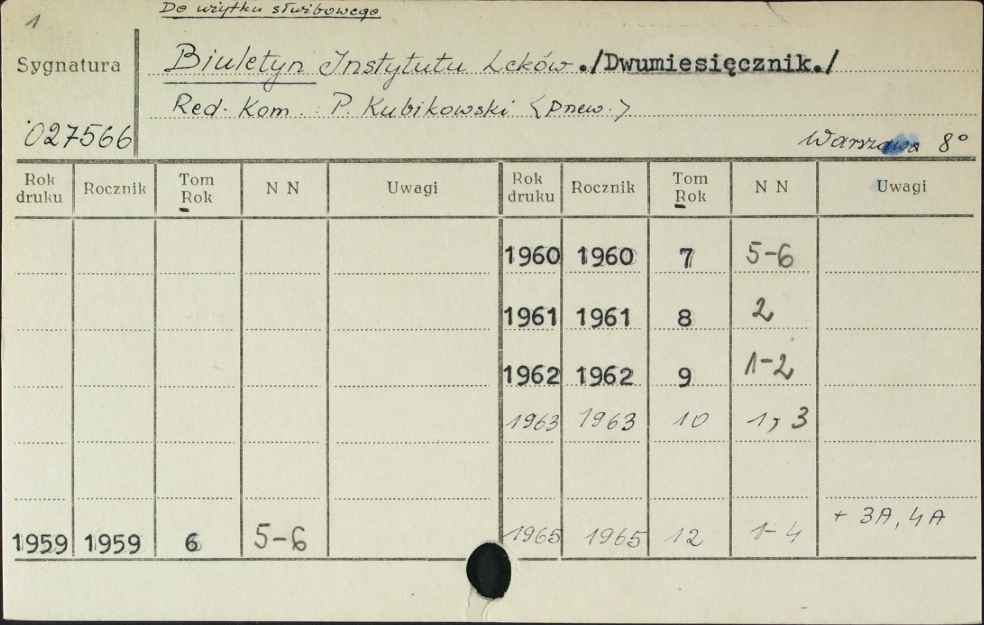 1
Do użytku służbowego
Sygnatura
Biuletyn Instytutu Leków ./Dwumiesięcznik./
Red. Kom. : P. Kubikowski <przew.>
027566
Warszawa 8°
Rok druku Rocznik Tom Rok N N Uwagi Rok druku Rocznik Tom Rok N N Uwagi
1960 1960 7 5-6
1961 1961 8 2
1962 1962 9 1-2
1963 1963 10 1, 3
1959 1959 6 5-6 1965 1965 12 1-4 + 3A, 4A